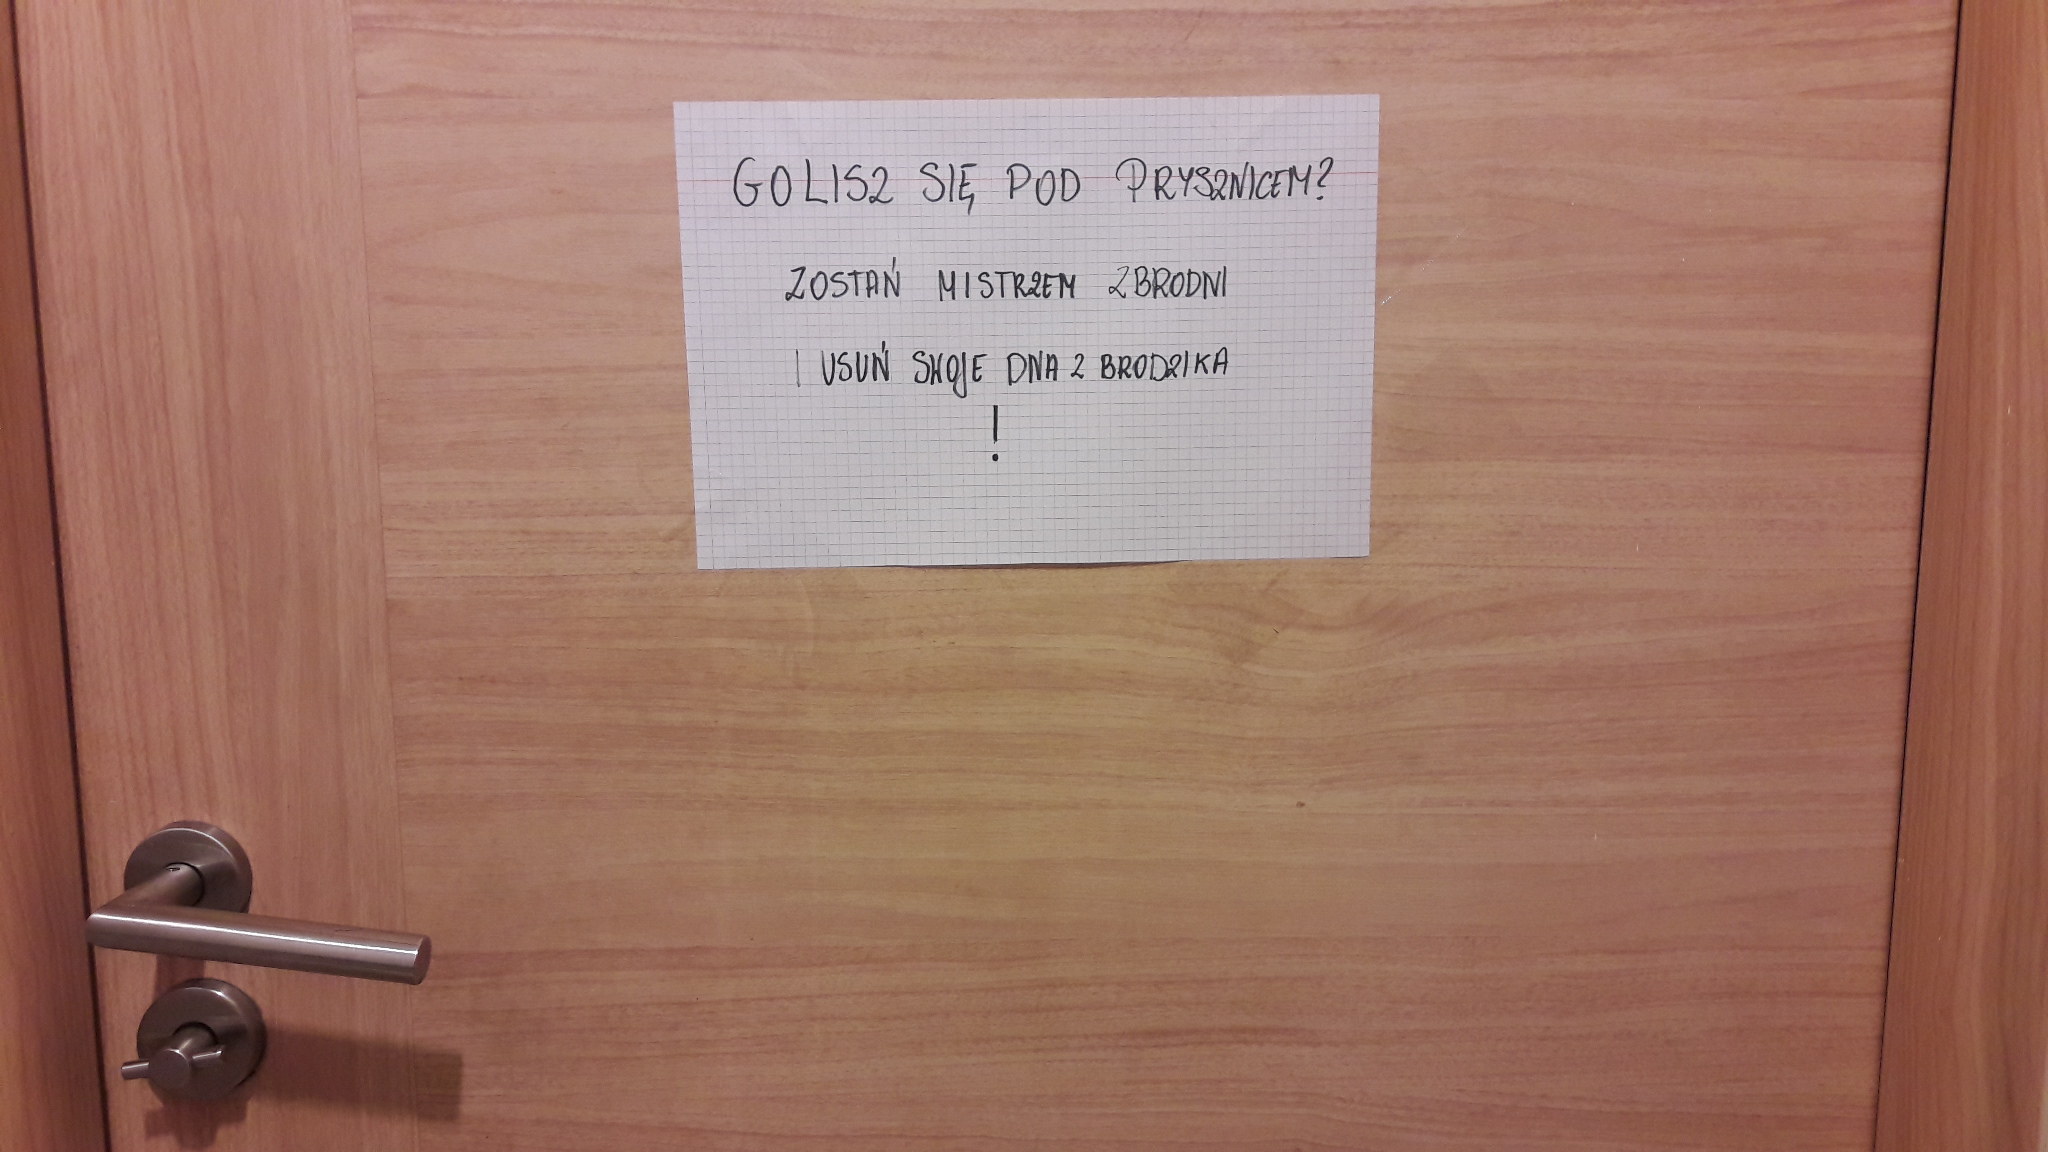 GOLISZ SIĘ POD PRYSZNICEM?
ZOSTAŃ MISTRZEM ZBRODNI
I USUŃ SWOJE DNA Z BRODZIKA
!